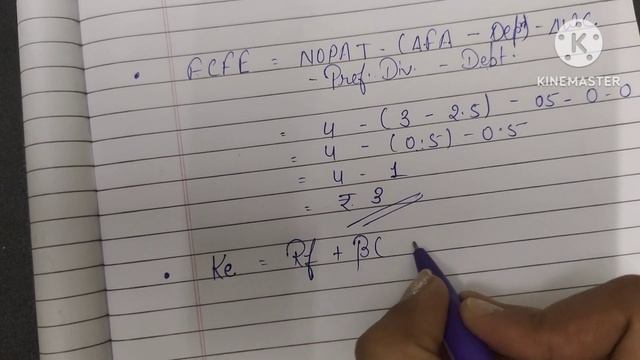 • FCFE = NOPAT - (ΔFA - Dep) -
- Pref. Div. - Debt.
= 4 - (3 - 2.5) - 05 - 0 - 0
= 4 - (0.5) - 0.5
= 4 - 1
= ₹ 3
• Ke = Rf + β(
K
KINEMASTER